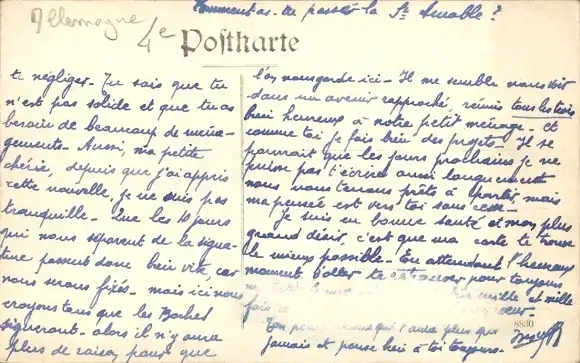 Comment as-tu passé la St Amable ?
Allemagne
4e
Postkarte
te négliger - Tu sais que tu
n'est pas solide et que tu as
besoin de beaucoup de ména-
gements - Aussi, ma petite
chérie, depuis que j'ai appris
cette nouvelle, je ne suis pas
tranquille - Que les 10 jours
qui nous séparent de la signa-
ture passent donc bien vite, car
nous serons fixés - mais ici nous
croyons tous que les Boches
signeront - alors il n'y aura
plus de raison pour que
l'on nous garde ici - Il me semble nous voir
dans un avenir rapproché, réunis tous les trois
bien heureux à notre petit ménage - et
comme toi je fais bien des projets - Il se
pourrait que les jours prochains je ne
puisse pas t'écrire aussi longuement
nous nous tenons prêts à partir, mais
ma pensée est vers toi sans cesse -
Je suis en bonne santé et mon plus
grand désir, c'est que ma carte te trouve
le mieux possible - En attendant l'heureux
moment d'aller te retrouver pour toujours
mille et mille
fois
Ton qui t'aime plus que
jamais et pense bien à toi toujours -
8830